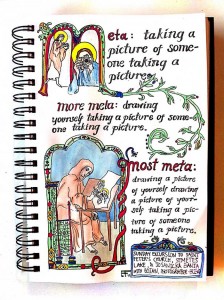 Meta: taking a
picture of some-
one taking a
picture.
more meta: drawing
yourself taking a picture of some-
one taking a picture.
most meta:
drawing a picture
of yourself drawing
a picture of your-
self taking a pic-
ture of someone
taking a picture.
SUNDAY EXCURSION TO SAINT
PETER'S CHURCH,